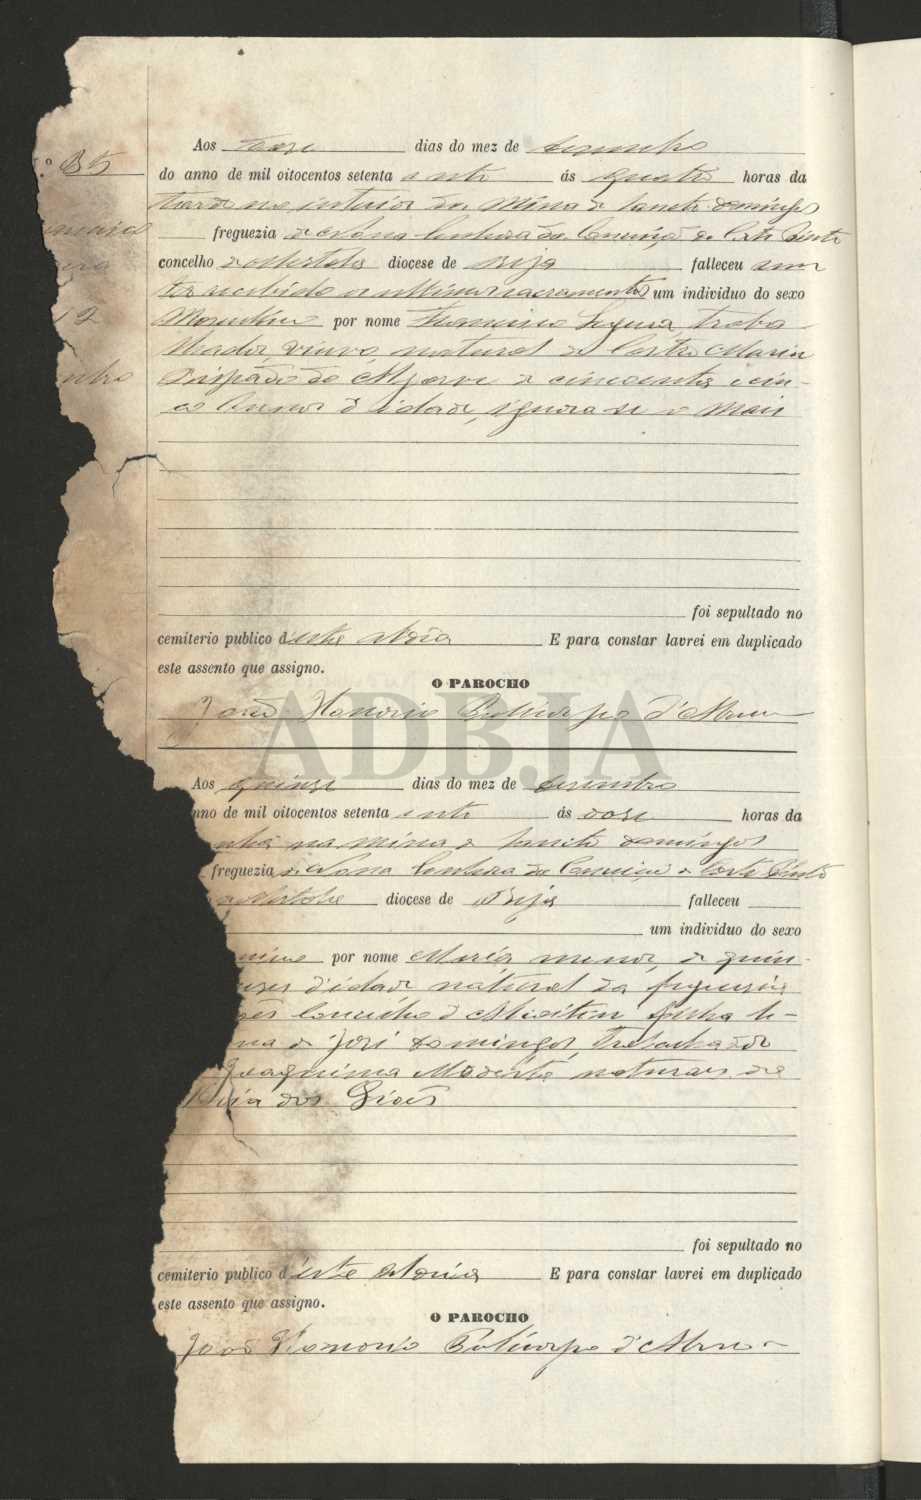 Aos dose dias do mez de desembro
Nº 35
do anno de mil oitocentos setenta e oito ás quatro horas da
tarde no interior da Mina de Sancto Domingos
freguezia de Nossa Senhora da Conceição de Corte Pinto
concelho de Mertola diocese de Beja falleceu sem
ter recibido os ultimos sacramentos um individuo do sexo
Masculino por nome Francisco traba-
lhador, viuvo, natural de Castro Marim
Bispado do Algarve de cincoenta e cin-
co annos d'idade, ignora-se o mais
foi sepultado no
cemiterio publico d'esta Aldeia E para constar lavrei em duplicado
este assento que assigno.
O PAROCHO
João Honorio Policarpo d'Abreu
ADBJA
Aos quinze dias do mez de desembro
nno de mil oitocentos setenta e oito ás dose horas da
na mina de Sancto Domingos
freguezia de Nossa Senhora da Conceição de Corte Pinto
de Mertola diocese de Beja falleceu
um individuo do sexo
inino por nome Maria menor, de quin-
meses d'idade natural da freguesia
Concelho d'Alcoitim filha le-
ma de José Domingos, Trabalhador
Joaquina natural de
dos Giões
foi sepultado no
cemiterio publico d'esta Aldeia E para constar lavrei em duplicado
este assento que assigno.
O PAROCHO
João Honorio Policarpo d'Abreu